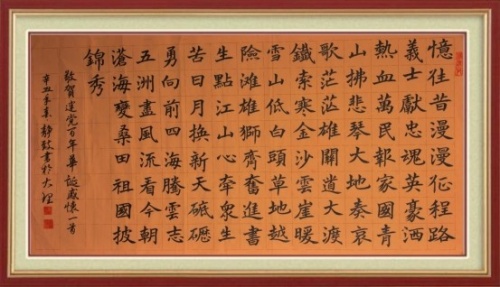 憶往昔漫漫征程路
義士獻忠魂英豪洒
熱血萬民報家國青
山拂悲琴大地奏哀
歌茫茫雄關道大渡
鐵索寒金沙雲崖暖
雪山低白頭草地越
險滩雄獅齊奮進書
生點江山心牽衆生
苦日月換新天砥礪
勇向前四海騰雲志
五洲盡風流看今朝
滄海變桑田祖國披
錦秀
敬賀建党百年華誕感懷一首
辛丑年 書於大理